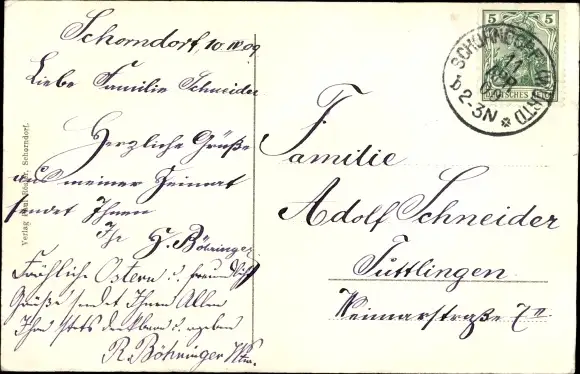 Schorndorf, 10. IV. 09
Liebe Familie Schneider
Herzliche Grüße
aus meiner Heimat
sendet Ihnen
Ihr G. Böhringer
Fröhliche Ostern u. freundlich
Grüße sendet Ihnen Allen
Ihre stets dankbare u. ergebene
R. Böhringer Wtw.
Verlag Schorndorf.
5
DEUTSCHES
SCHORNDORF (WÜRTT)
11 APR 09
b 2-3N
Familie
Adolf Schneider
Tuttlingen
Weimarstraße 7 II